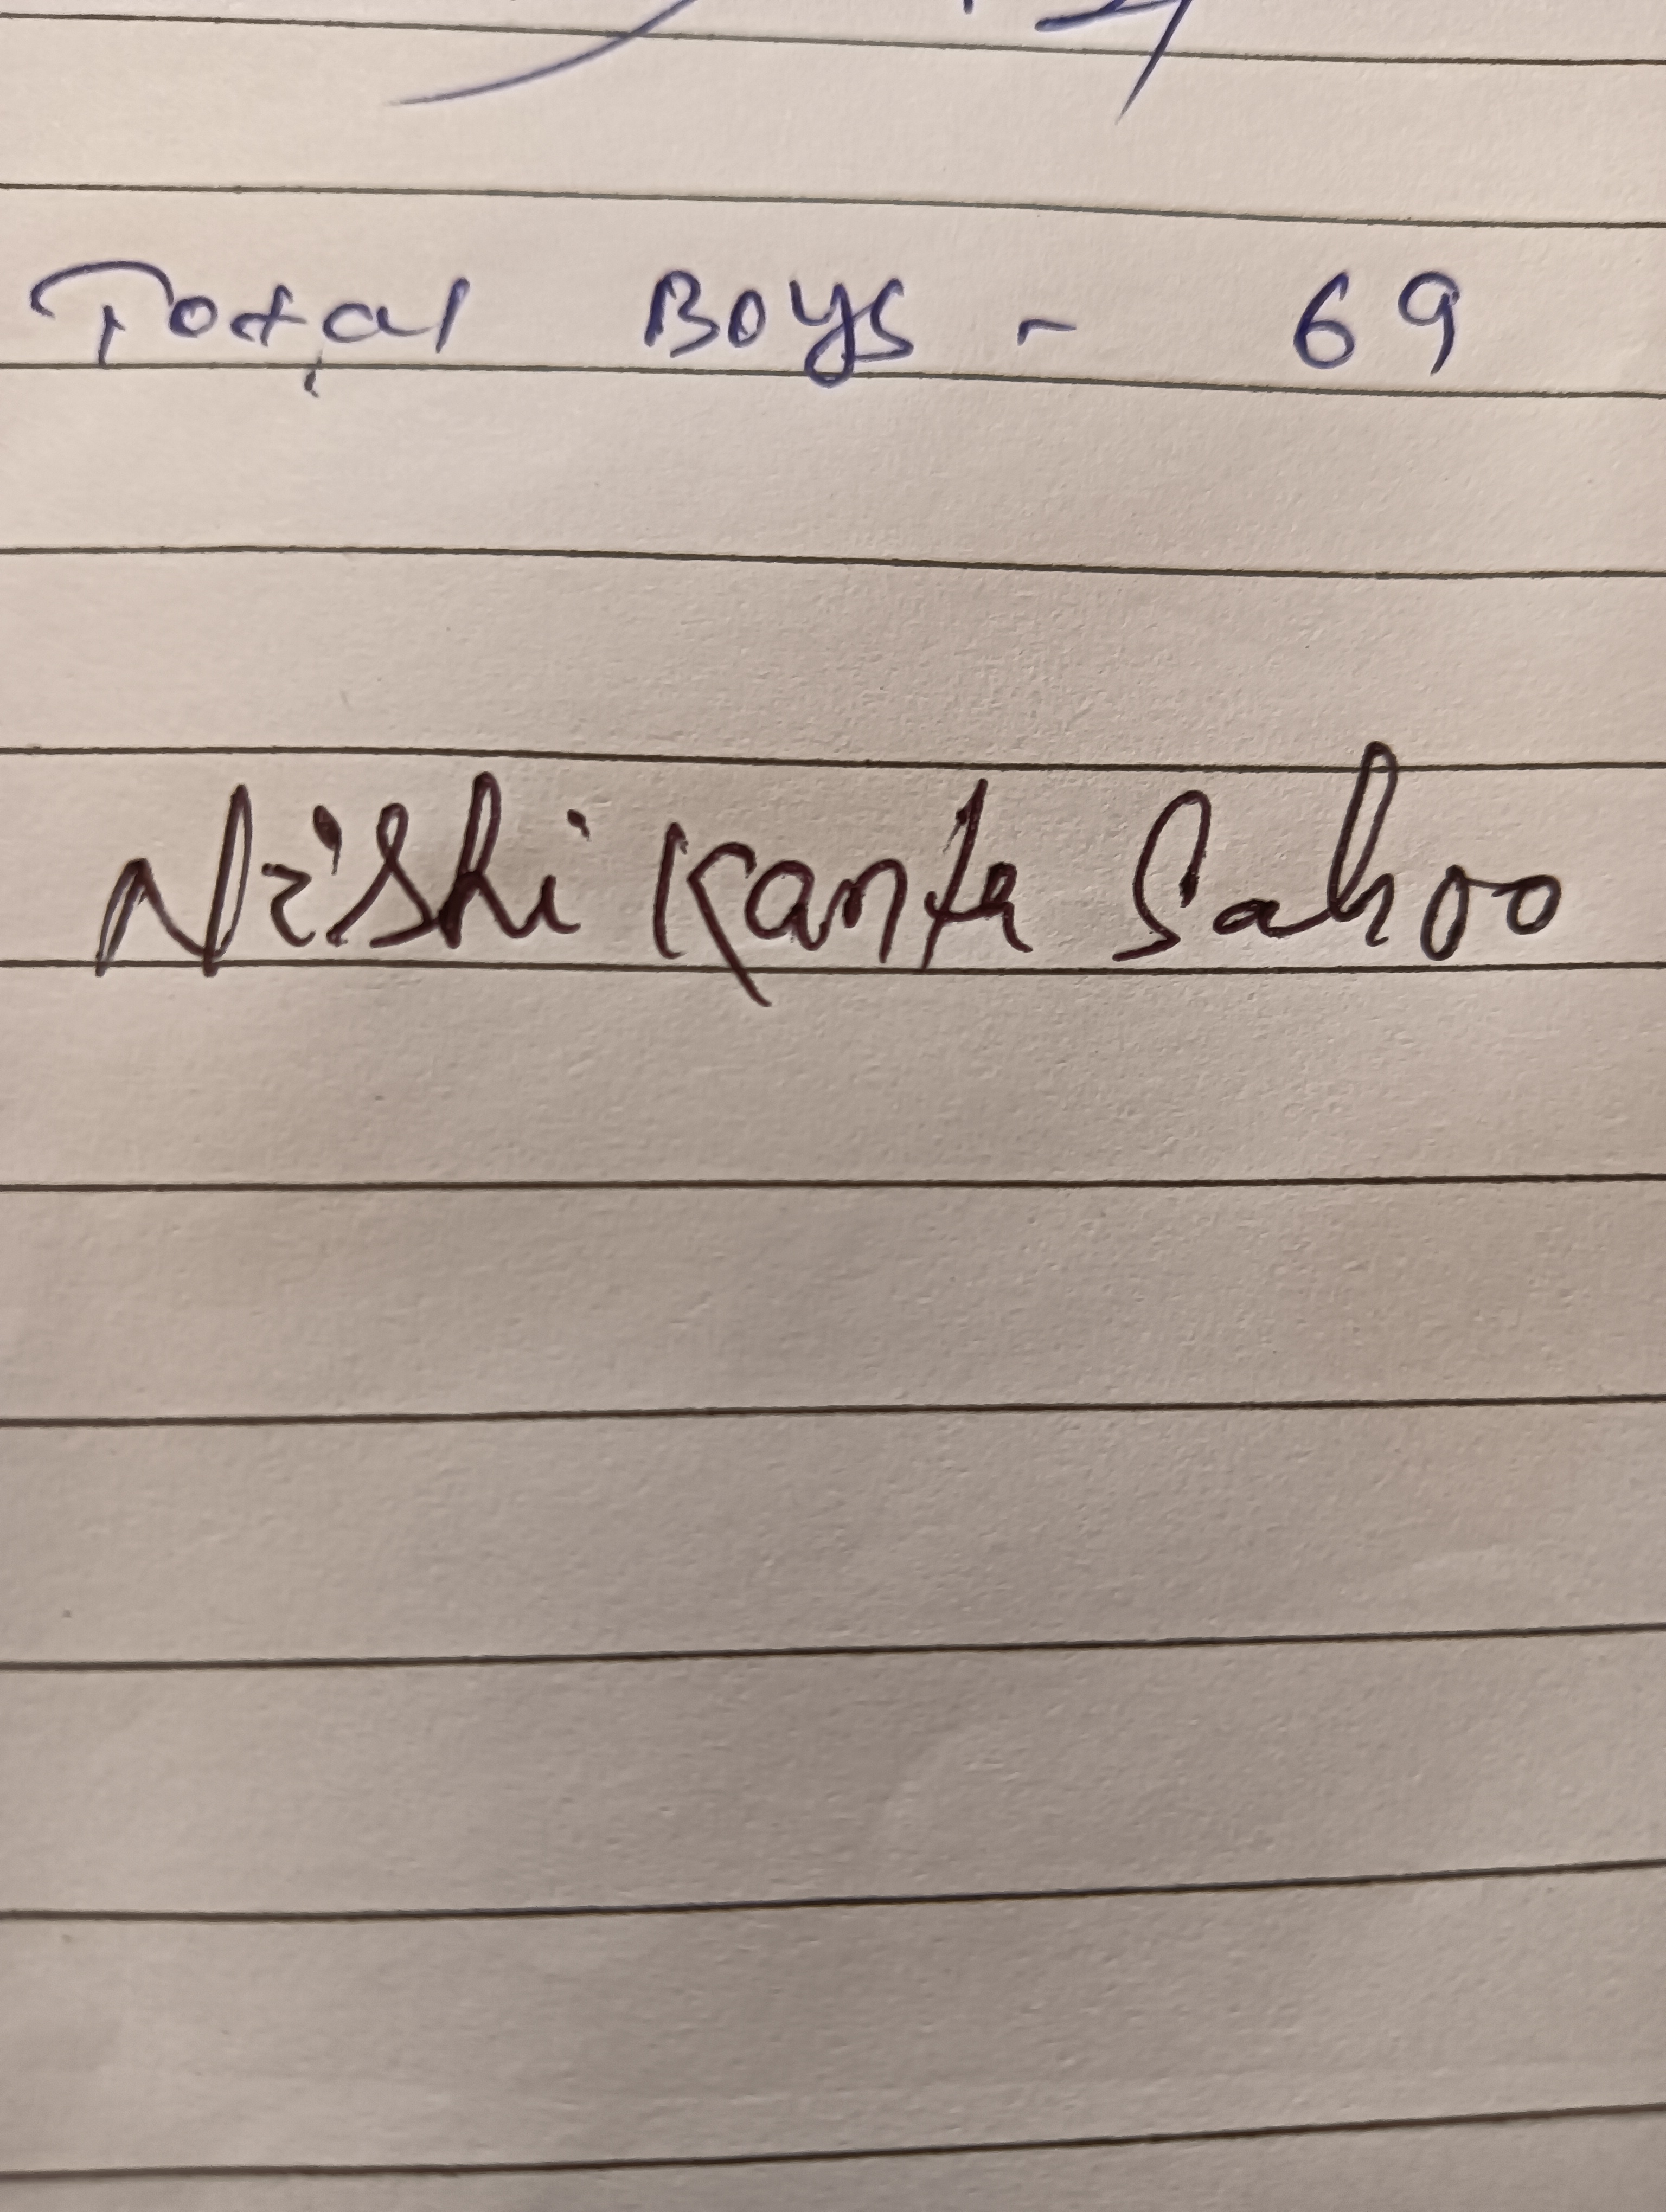 Total Boys - 69
Nishi Kanta Sahoo